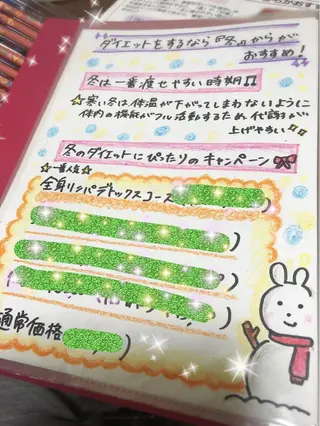 ダイエットをするなら『冬』からが
おすすめ!
冬は一番痩せやすい時期♫
☆寒い冬は体温が下がってしまわないように
体内の機能がフル活動するため、代謝が
上げやすい
冬のダイエットにぴったりのキャンペーン
☆一番人気☆
全身リンパデトックスコース
通常価格